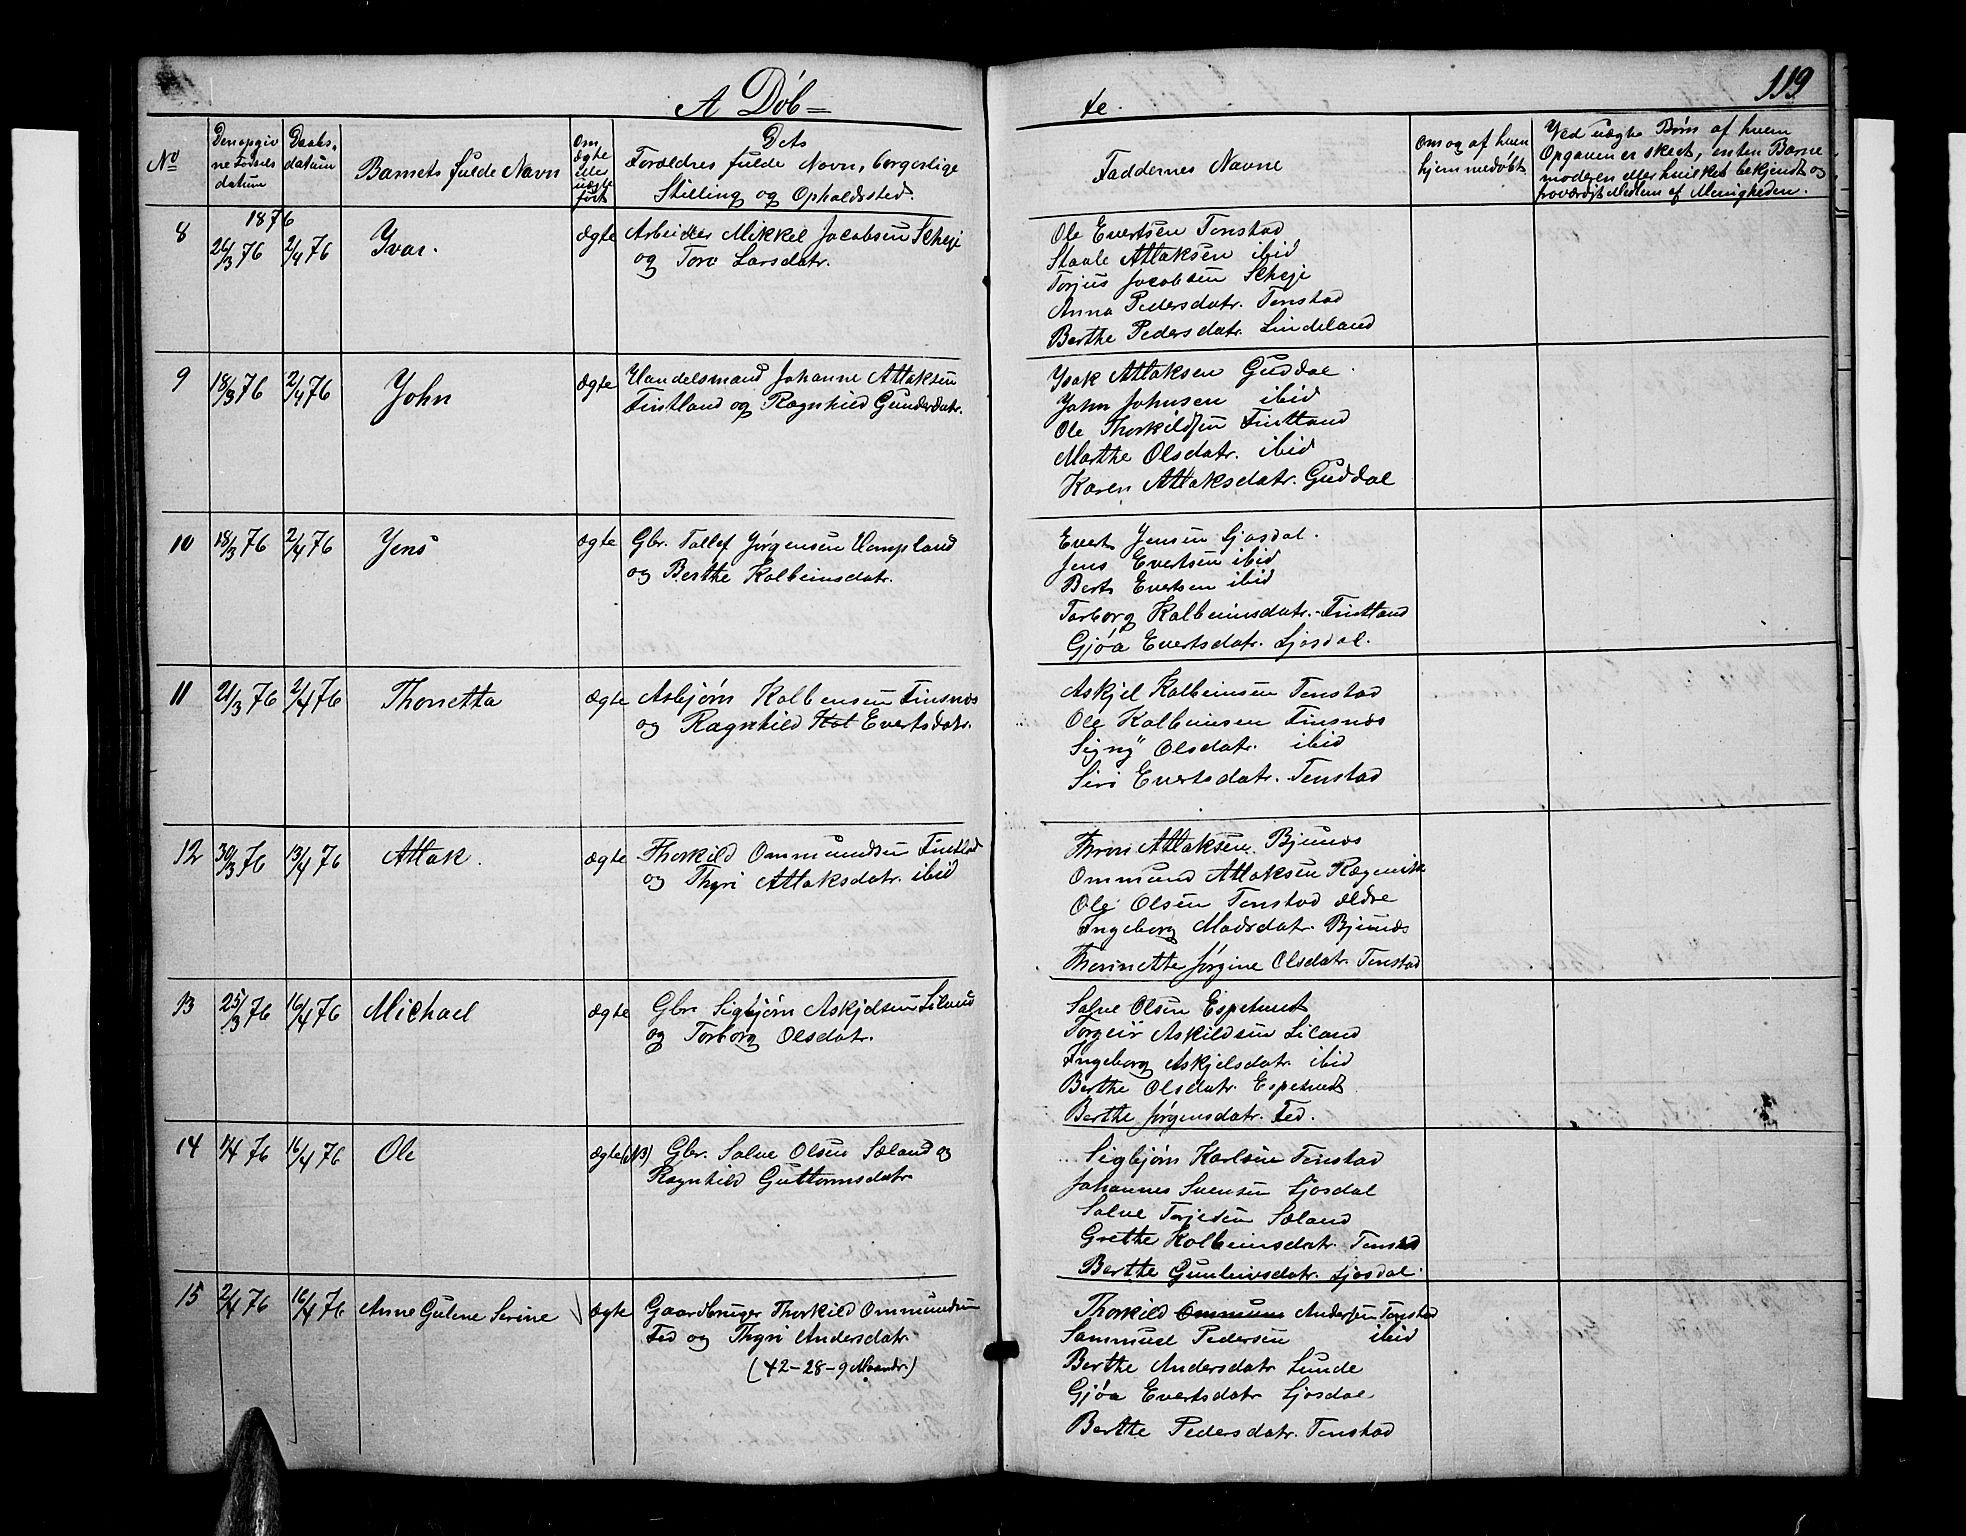 119
A Døb=
te.
No
Den opgivne Fødselsdatum
Daabsdatum
Barnets fulde Navn
Om ægte eller uægte født
Dets
Forældres fulde Navn, borgerlige
Stilling og Opholdssted.
Faddernes Navne
Om og af hvem
hjemmedøbt
Ved uægte Børn af hvem
Opgaven er skeet, enten Barne
moderen eller hvilket bekjendt og
troværdigt Medlem af Menigheden.
1876
8 26/3 76 2/4 76 Yvar. ægte Arbeider Mikkel Jacobsen Scheje
og Tore Larsdatr.
Ole Evertsen Tonstad
Staale Atlaksen ibid
Torjus Jacobsen Scheje
Anna Pedersdatr. Tonstad
Berthe Pedersdatr. Lindeland
9 18/3 76 2/4 76 John ægte Handelsmand Johanne Atlaksen
Fintland og Ragnhild Gundersdatr.
Ysak Atlaksen Guddal.
John Johnsen ibid
Ole Thorkildsen Fintland
Marthe Olsdatr. ibid
Karen Atlaksdatr. Guddal
10 18/3 76 2/4 76 Jens ægte Gbr. Tallef Jørgensen Hompland
og Berthe Kolbeinsdatr.
Evert Jensen Ljosdal.
Jens Evertsen ibid
Bert Evertsen ibid
Torborg Kolbeinsdatr. Fintland
Gjøa Evertsdatr. Ljosdal.
11 21/3 76 2/4 76 Thonetta ægte Asbjørn Kolbensen Finsnæs
og Ragnhild Kol Evertsdatr.
Askjel Kolbeinsen Tonstad
Ole Kolbeinsen Finsnæs
Signÿ Olsdatr. ibid
Siri Evertsdatr. Tonstad
12 30/3 76 13/4 76 Atlak. ægte Thorkild Ommundsen Fintland
og Thyri Atlaksdatr. ibid
Tron Atlaksen Bjunæs
Ommund Atlaksen Rægevik
Ole Olsen Tonstad ældre
Ingeborg Madsdatr. Bjunæs
Thorinette Jørgine Olsdatr. Tonstad
13 25/3 76 16/4 76 Michael ægte Gbr. Sigbjørn Askjelsen Liland
og Torborg Olsdatr.
Salve Olsen Espetvedt
Torgeir Askildsen Liland
Ingeborg Askjelsdatr. ibid
Berthe Olsdatr. Espetvedt
Berthe Jørgensdatr. Fed.
14 1/4 76 16/4 76 Ole ægte (N3) Gbr. Salve Olsen Sæland og
Ragnhild Guttormsdatr
Sigbjørn Karlsen Tonstad
Johannes Svensen Ljosdal
Salve Torjesen Sæland
Grethe Kolbeinsdatr. Tonstad
Berthe Gunleivsdatr. Ljosdal.
15 2/4 76 16/4 76 Anne Guline Serine ægte Gaardbruger Thorkild Ommundsen
Fed og Thyri Andersdatr.
(42-28-9 Maander)
Thorkild Ommun Andersen Tonstad
Sammuel Pedersen ibid
Berthe Andersdatr Lunde
Gjøa Evertsdatr Ljosdal
Berthe Pedersdatr. Tonstad